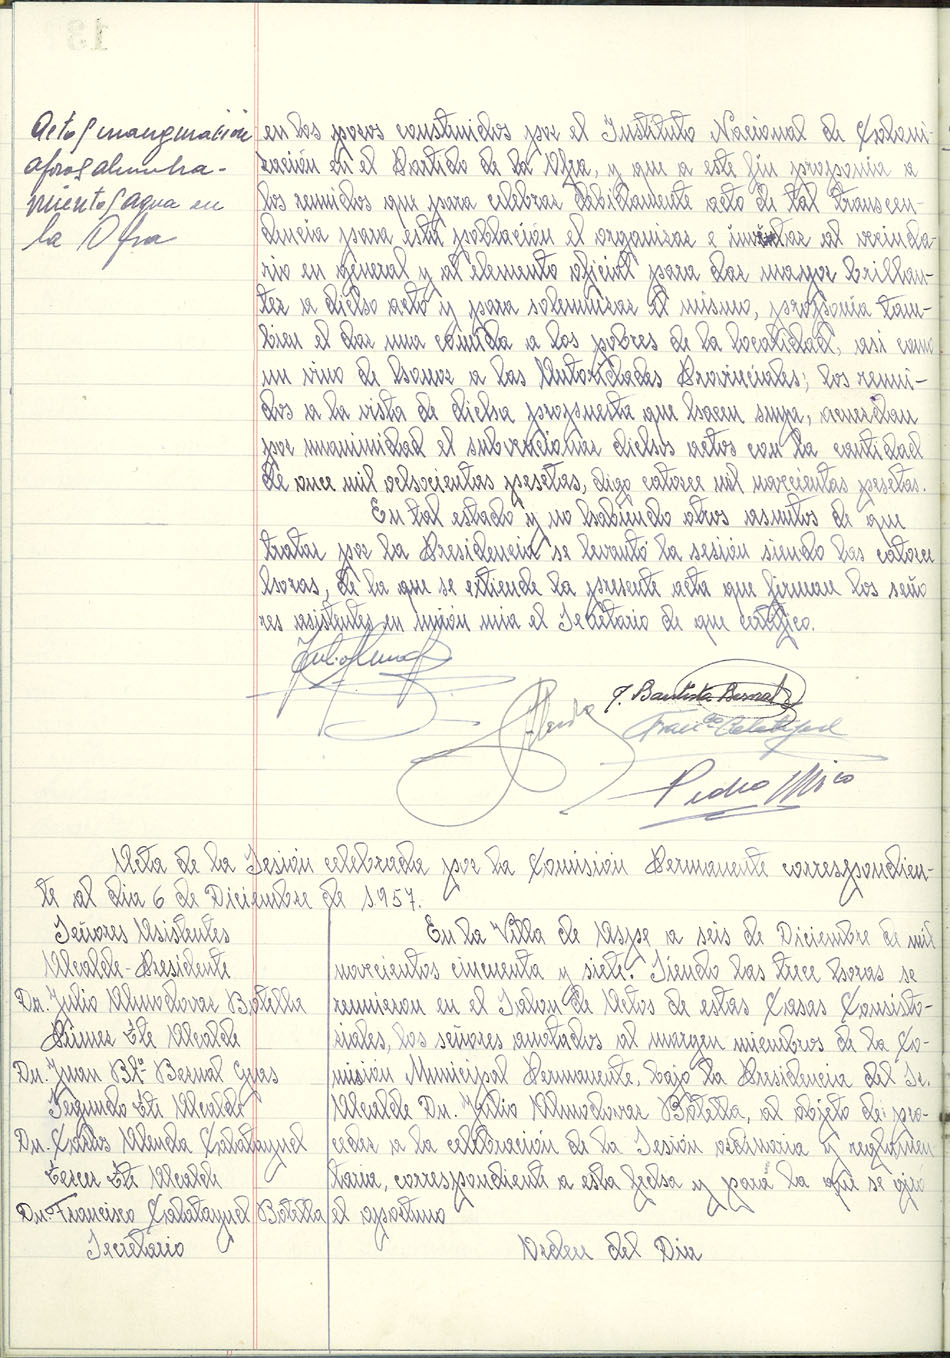 Actos inauguración
aforos alumbra-
mientos agua en
la Ofra
en los pozos construidos por el Instituto Nacional de Coloni-
zación en el Partido de la Ofra, y que a este fin proponia a
los reunidos que para celebrar debidamente acto de tal transcen-
dencia para esta población el organizar e invitar al vecinda-
rio en general y al elemento oficial para dar mayor brillan-
tez a dicho acto y para solemnizar el mismo, proponia tam-
bien el dar una comida a los pobres de la localidad, asi como
un vino de honor a las Autoridades Provinciales; los reuni-
dos a la vista de dicha propuesta que hacen suya, acuerdan
por unanimidad el subvencionar dichos actos con la cantidad
de once mil ochocientas pesetas, digo catorce mil novecientas pesetas.
En tal estado y no habiendo otros asuntos de que
tratar por la Presidencia se levantó la sesión siendo las catorce
horas, de la que se extiende la presente acta que firman los seño
res asistentes en unión mia el Secretario de que certifico.
J. Bautista Bernal
Franco Calatayud
Pedro Mico
Acta de la Sesión celebrada por la Comisión Permanente correspondien-
te al dia 6 de Diciembre de 1957.
Señores Asistentes
Alcalde-Presidente
Dn. Julio Almodovar Botella
Primer Tte Alcalde
Dn. Juan Bta. Bernal Cyas
Segundo Tte Alcalde
Dn. Carlos Alenda Calatayud
Tercer Tte Alcalde
Dn. Francisco Calatayud Botella
Secretario
En la Villa de Aspe a seis de Diciembre de mil
novecientos cincuenta y siete. Siendo las trece horas se
reunieron en el Salon de Actos de estas Casas Consisto-
riales, los señores anotados al margen miembros de la Co-
misión Municipal Permanente, bajo la Presidencia del Sr.
Alcalde Dn. Julio Almodovar Botella, al objeto de pro-
ceder a la celebración de la Sesión ordinaria y reglamen
taria, correspondiente a esta fecha y para la que se fijó
el oportuno
Orden del Dia